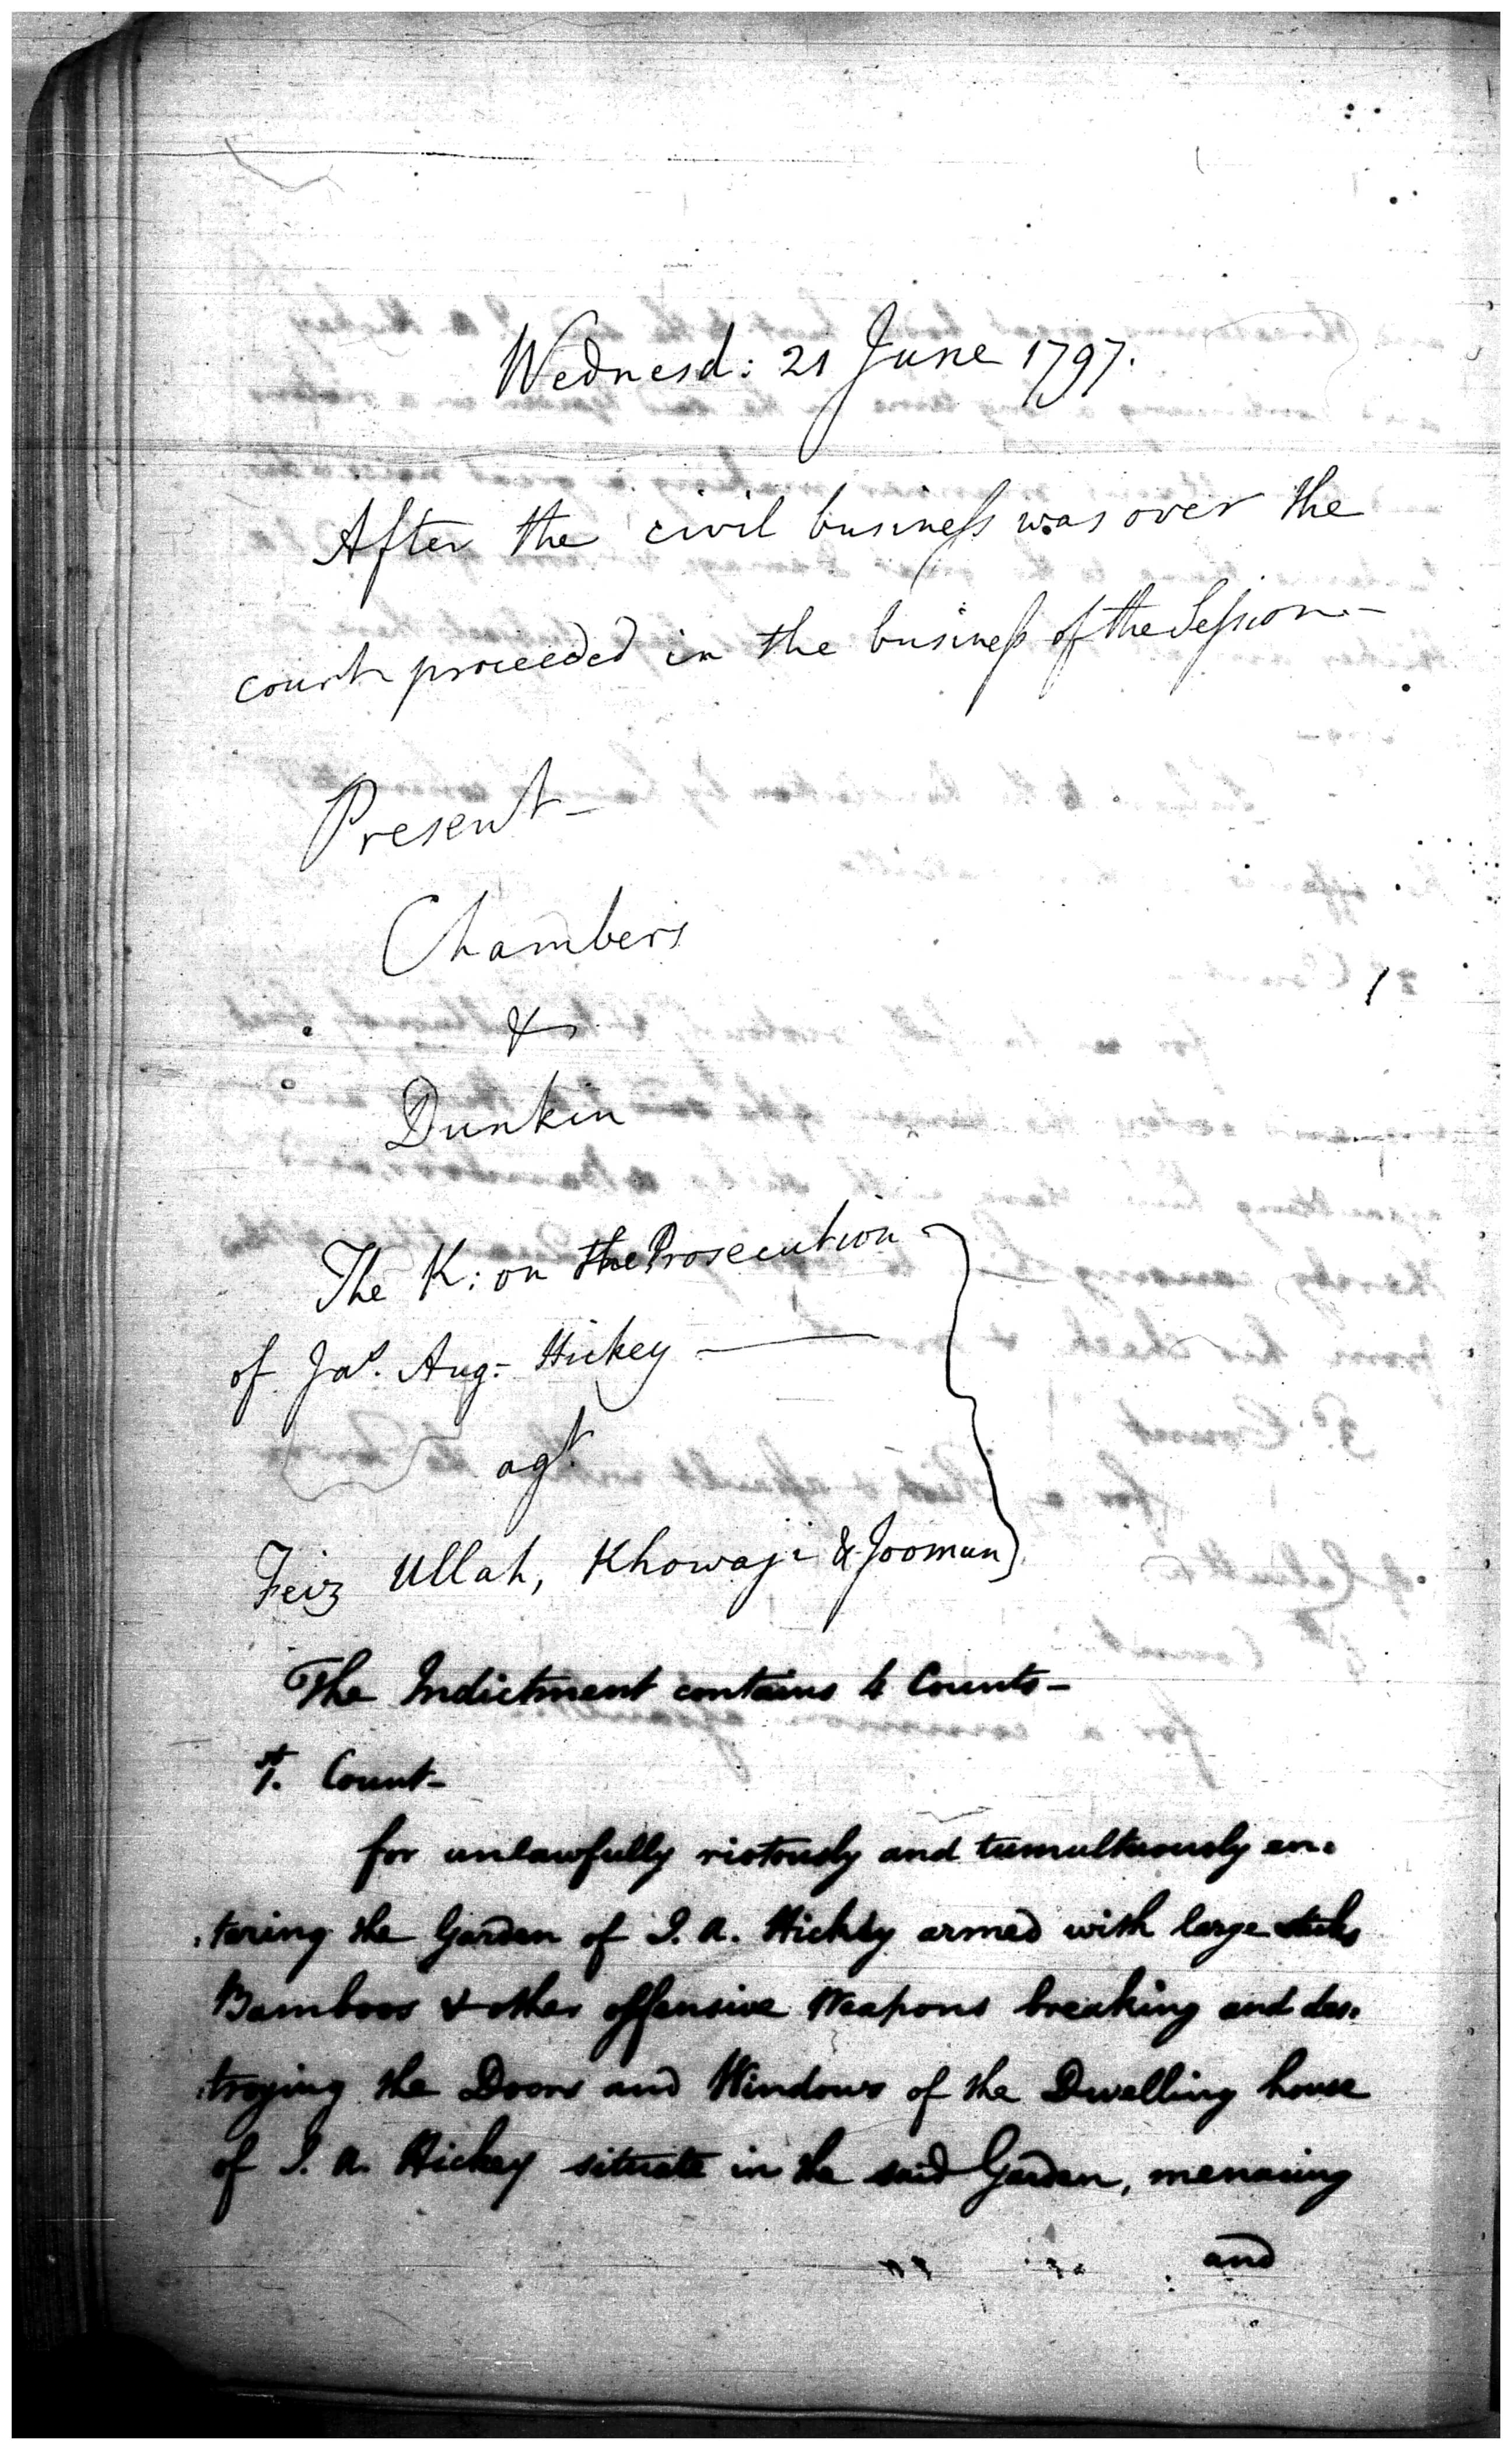 Wednesd: 21 June 1797.
After the civil business was over the
court proceeded in the business of the Session—
Present—
Chambers
&
Dunkin
The K: on the Prosecution
of Jas. Aug: Hickey —
agt.
Feiz Ullah, Khowaji & Jooman
The Indictment contains 4 Counts—
1st. Count—
for unlawfully riotously and tumultuously en:
:tering the Garden of J. A. Hickey armed with large sticks
Bamboos & other offensive Weapons breaking and des:
:troying the Doors and Windows of the Dwelling house
of J. A. Hickey situate in the said Garden, menacing
and